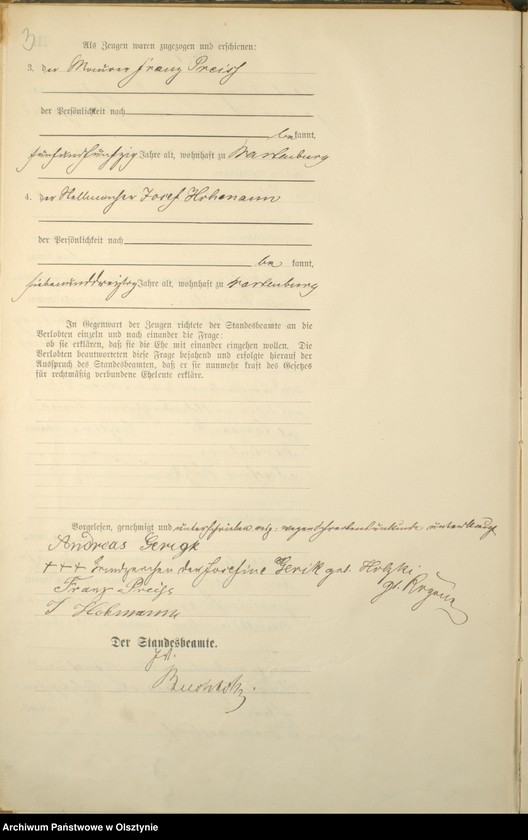 3
Als Zeugen waren zugezogen und erschienen:
3. der Maurer Franz Preiß
der Persönlichkeit nach
bekannt,
fünfundfünfzig Jahre alt, wohnhaft zu Wartenburg
4. der Stellmacher Josef Hohmann
der Persönlichkeit nach
be kannt,
siebenunddreißig Jahre alt, wohnhaft zu Wartenburg
In Gegenwart der Zeugen richtete der Standesbeamte an die
Verlobten einzeln und nach einander die Frage:
ob sie erklären, daß sie die Ehe mit einander eingehen wollen. Die
Verlobten beantworteten diese Frage bejahend und erfolgte hierauf der
Ausspruch des Standesbeamten, daß er sie nunmehr kraft des Gesetzes
für rechtmäßig verbundene Eheleute erkläre.
Vorgelesen, genehmigt und unterschrieben wegen Schreibensunkunde unterkreuzt
Andreas Gerigk
+++ Handzeichen der Josefine Gerik geb.
Franz Preiß
J Hohmann
Der Standesbeamte.
Archiwum Państwowe w Olsztynie